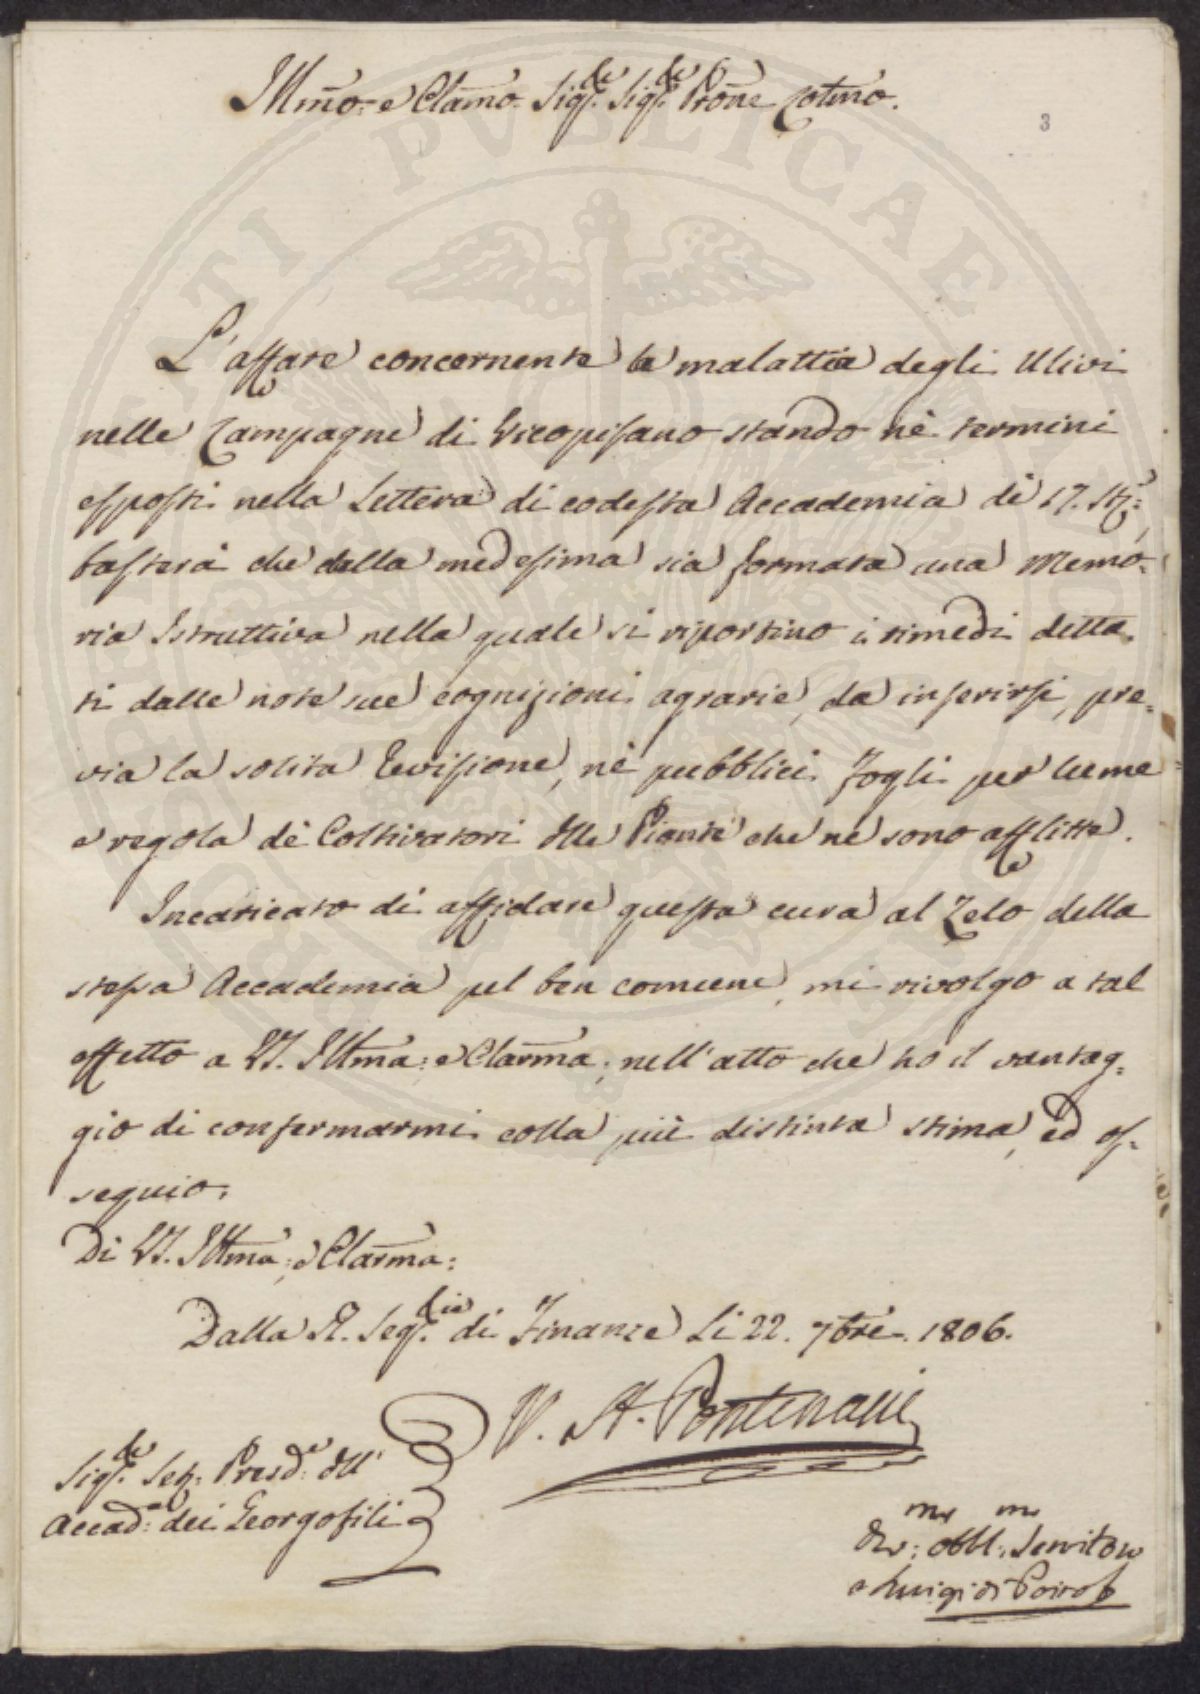 Illmo: e Clamo: Sigre: Sigre: Prone Colmo.
3
L'affare concernente la malattia degli Ulivi
nelle Campagne di Vicopisano stando nè termini
esposti nella Lettera di codesta Accademia de 17.
basterà che dalla medesima sia formata una Memo-
ria Istruttiva nella quale si riportino i rimedi detta-
ti dalle note sue cognizioni agrarie, da inserirsi, pre-
via la solita Revisione, nè pubblici Fogli per lume
e regola dè Coltivatori dlle Piante che ne sono afflitte.
Incaricato di affidare questa cura al Zelo della
stessa Accademia pel ben comune, mi rivolgo a tal
effetto a VS. Illma: e Clarma; nell'atto che ho il vantag-
gio di confermarmi colla più distinta stima, ed os-
sequio.
Di VS. Illma: e Clarma:
Dalla R. Segria di Finanze Li 22. 7bre. 1806.
V. A. Pontenani
Sigre: Seg: Presde: dll'
Accada: dei Georgofili
Dev:mo obbl:mo Servitore
Luigi di Poirot
PRUDENTI PVBLICAE